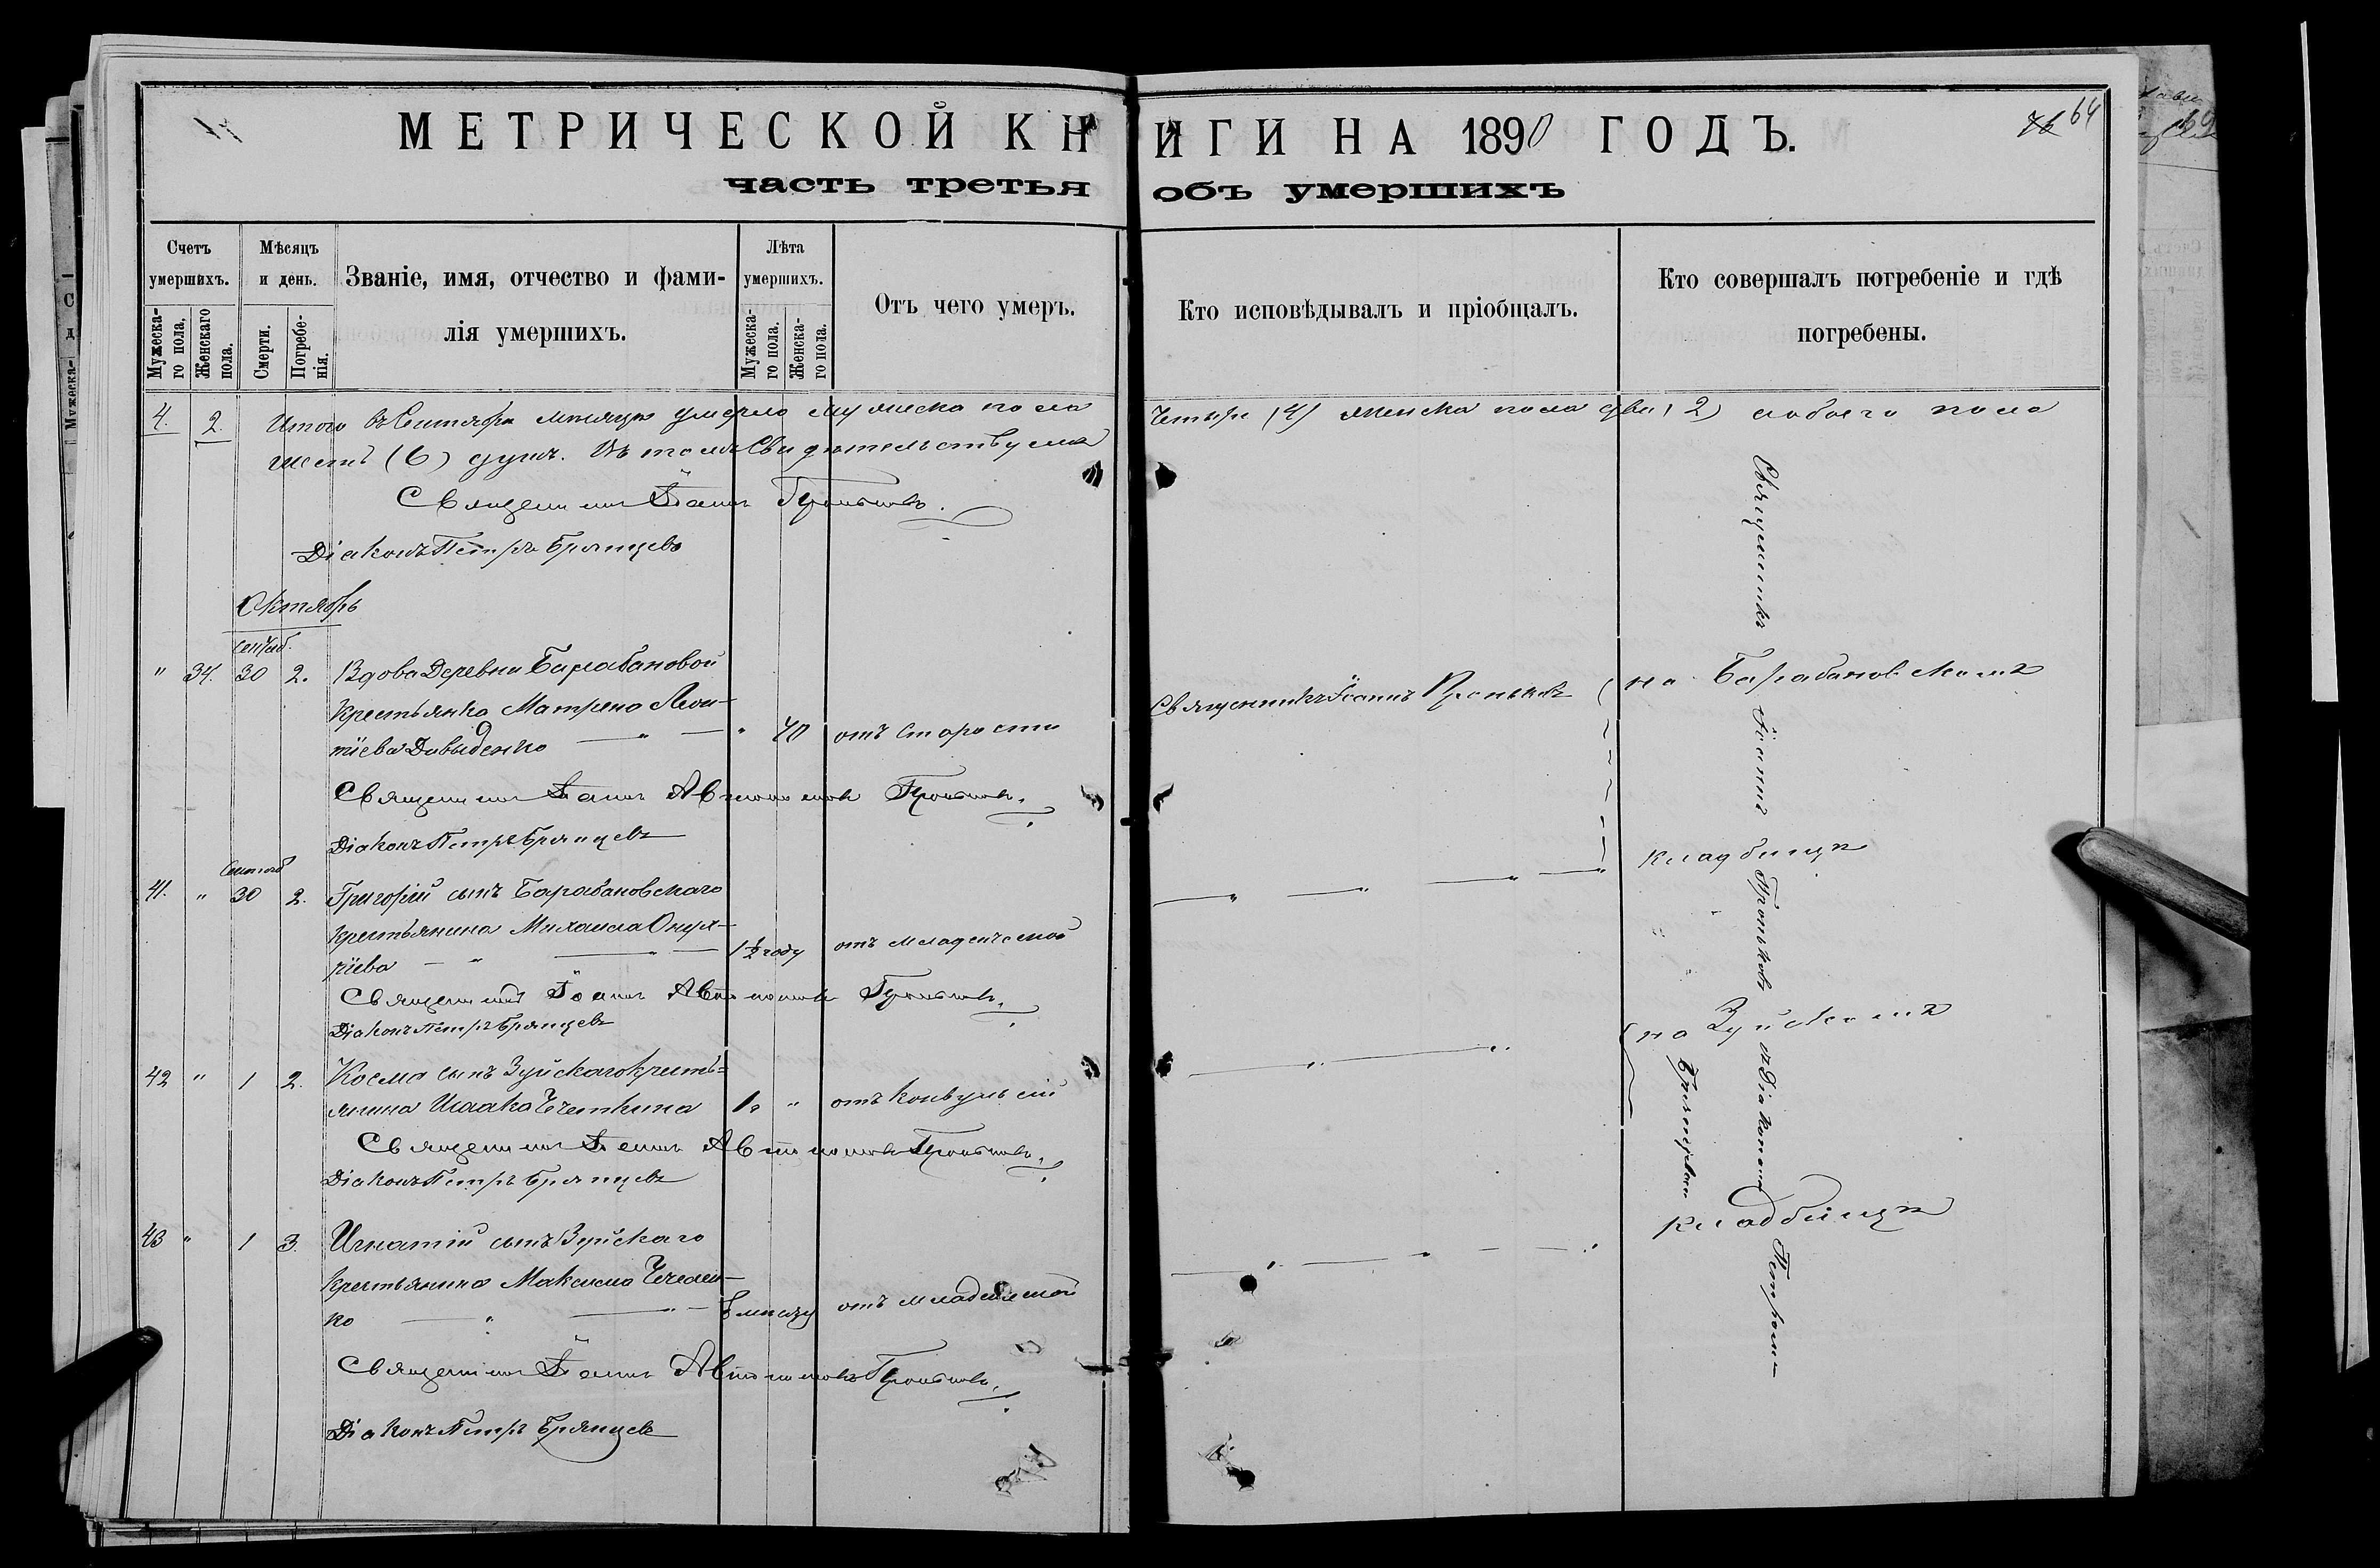 МЕТРИЧЕСКОЙ КНИГИ НА 1890 ГОДЪ.
64
часть третья объ умершихъ
Счетъ умершихъ.
Мужеска-го пола.
Женскаго пола.
Мѣсяцъ и день.
Смерти.
Погребе-нія.
Званіе, имя, отчество и фами-
лія умершихъ.
Лѣта умершихъ.
Мужеска-го пола.
Женска-го пола.
Отъ чего умеръ.
Кто исповѣдывалъ и пріобщалъ.
Кто совершалъ погребеніе и гдѣ
погребены.
4. 2. Итого въ Сентябрѣ мѣсяцѣ умерло мужеска пола Четыре (4) женска пола две (2) обоего пола
шесть (6) душъ. Въ томъ свидѣтельствуемъ
Священникъ Іоаннъ Проньковъ.
Діаконъ Петръ Брянцевъ
Октябрь
Сентяб.
" 34. 30 2. Вдова Деревни Барабановой
крестьянка Матрена Леон-
тіева Давыденко " 70 отъ старости
Священникъ Іоаннъ Проньковъ
на Барабановскомъ
Священникъ Іоаннъ Автономовъ Проньковъ.
Діаконъ Петръ Брянцевъ
кладбищѣ
Сентяб
41. " 30 2. Григорій сынъ Барабановскаго
крестьянина Михаила Онуф-
ріева 1½ году отъ младенческой
Священникъ Іоаннъ Автономовъ Проньковъ.
Діаконъ Петръ Брянцевъ
на Зуйскомъ
42 " 1 2. Косма сынъ Зуйскаго кресть=
янина Исаака Чечеткина 1. " отъ конвульсій
Священникъ Іоаннъ Автономовъ Проньковъ.
Діаконъ Петръ Брянцевъ
кладбищѣ
43 " 1 3. Игнатій сынъ Зуйскаго
крестьянина Максима
ко отъ младенческой
Священникъ Іоаннъ Автономовъ Проньковъ.
Діаконъ Петръ Брянцевъ
Священникъ Іоаннъ Проньковъ съ Діакономъ Петромъ
Брянцевымъ